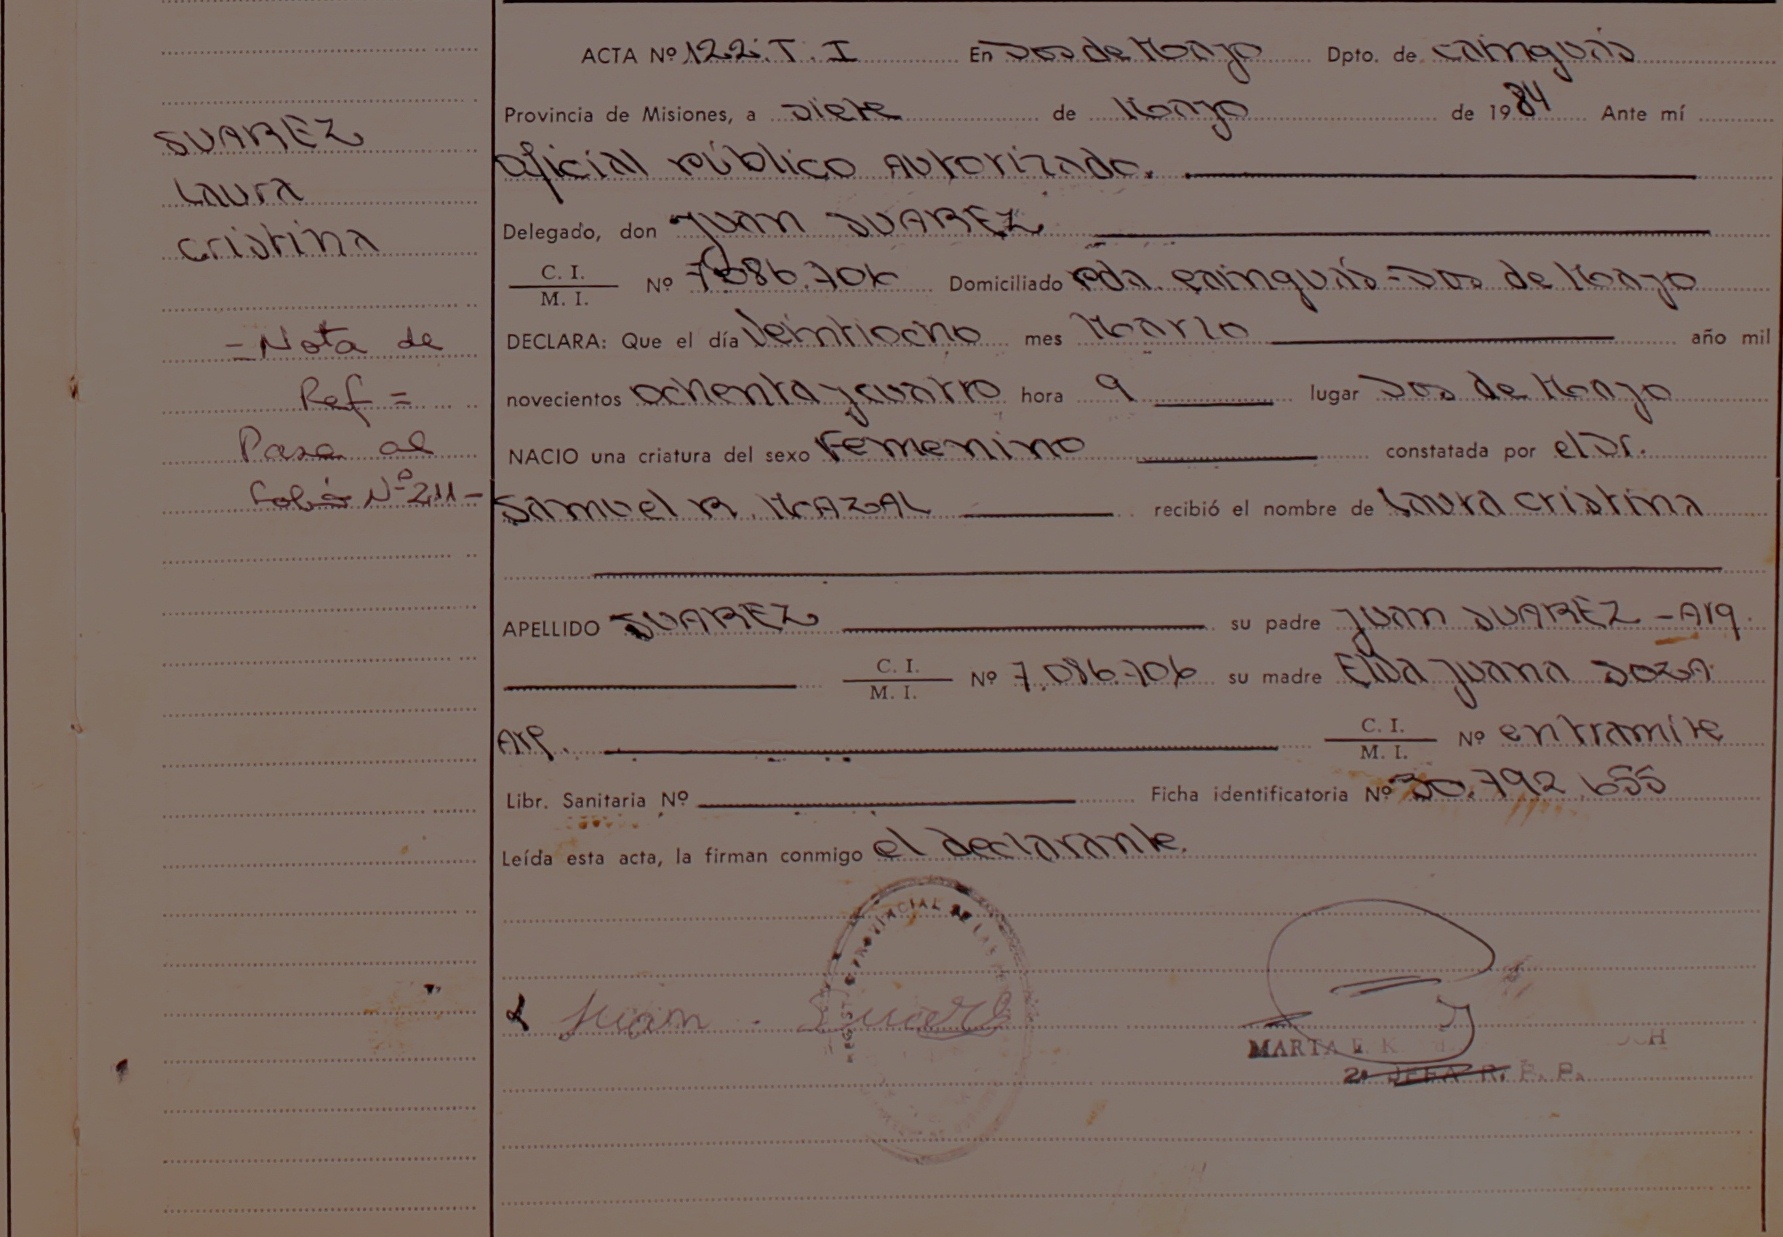 ACTA Nº 122. T. I En Dos de Mayo Dpto. de Cainguás
Provincia de Misiones, a siete de Mayo de 1984 Ante mí
SUAREZ
Laura
Cristina
oficial Público Autorizado.
Delegado, don Juan SUAREZ
C. I.
M. I. Nº 7.086.706 Domiciliado Pda. Cainguás - Dos de Mayo
- Nota de
Ref =
Pasa al
Folio Nº 211 -
DECLARA: Que el día Veintiocho mes Marzo año mil
novecientos ochenta y cuatro hora 9 lugar Dos de Mayo
NACIO una criatura del sexo Femenino constatada por el Dr.
Samuel R. MAZAL recibió el nombre de Laura Cristina
APELLIDO SUAREZ su padre Juan SUAREZ - Arg.
C. I.
M. I. Nº 7.086.706 su madre Elba Juana SOZA
Arg. C. I.
M. I. Nº en tramite
Libr. Sanitaria Nº Ficha identificatoria Nº 30.792.655
Leída esta acta, la firman conmigo el declarante.
PROVINCIAL DE LAS
Juan Suarez
MARTA E. K.
2ª JEFA R. P. P.